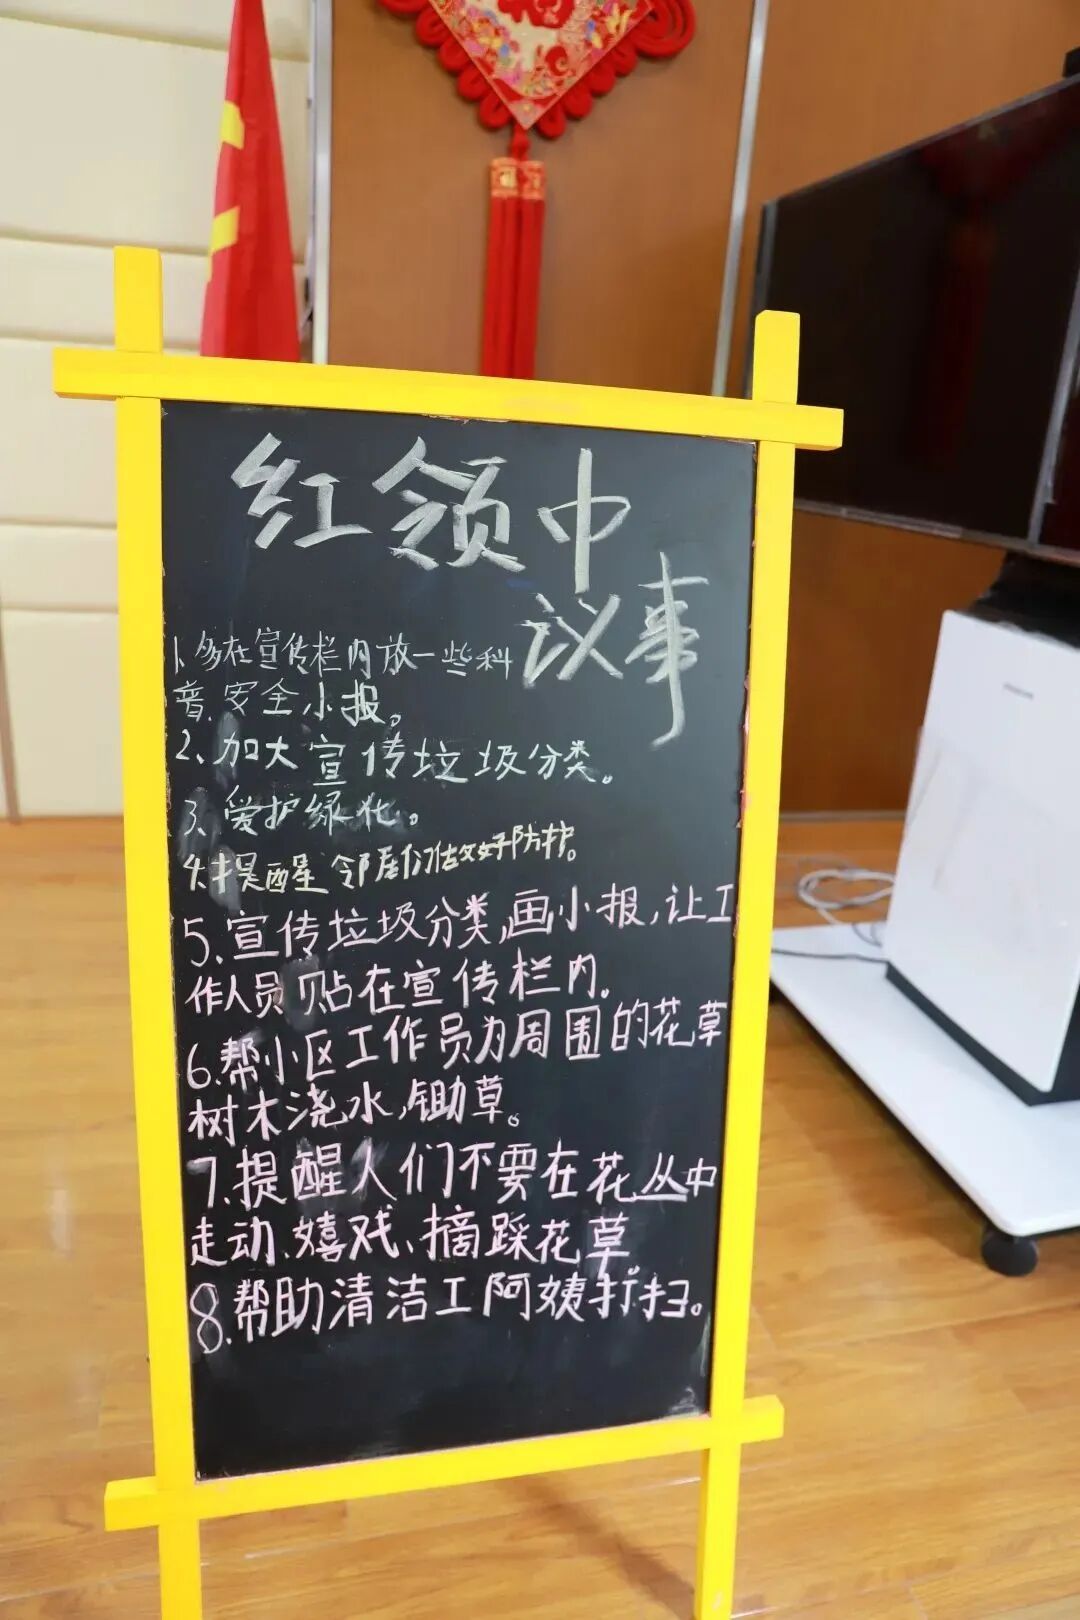 红领巾
议事
1、多在宣传栏内放一些科
普、安全小报。
2、加大宣传垃圾分类。
3、爱护绿化。
4.提醒邻居们做好防护。
5.宣传垃圾分类,画小报,让工
作人员贴在宣传栏内。
6.帮小区工作员为周围的花草
树木浇水,锄草。
7.提醒人们不要在花丛中
走动、嬉戏、摘踩花草
8.帮助清洁工阿姨打扫。